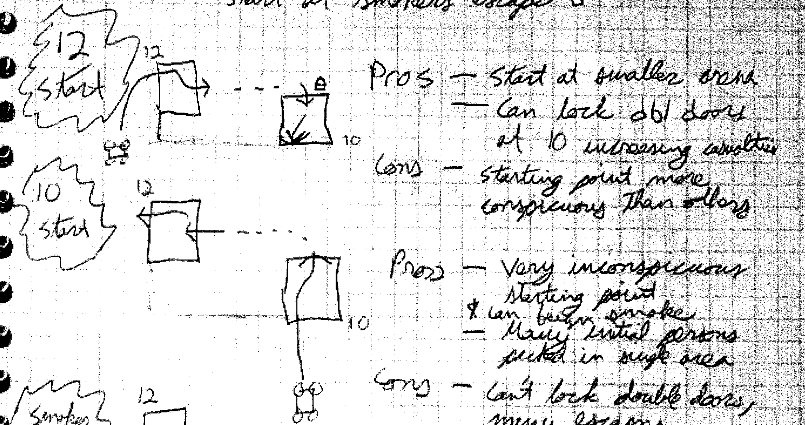 start at smokers escape
12
start
12
10
Pros – Start at smaller arena
– Can lock dbl doors
at 10 increasing casualties
Cons – starting point more
conspicuous than others
10
start
12
10
Pros – Very inconspicuous
starting point
& can begin smoke
– Many initial persons
packed in single area
Cons – Can't lock double doors,
smokers
12